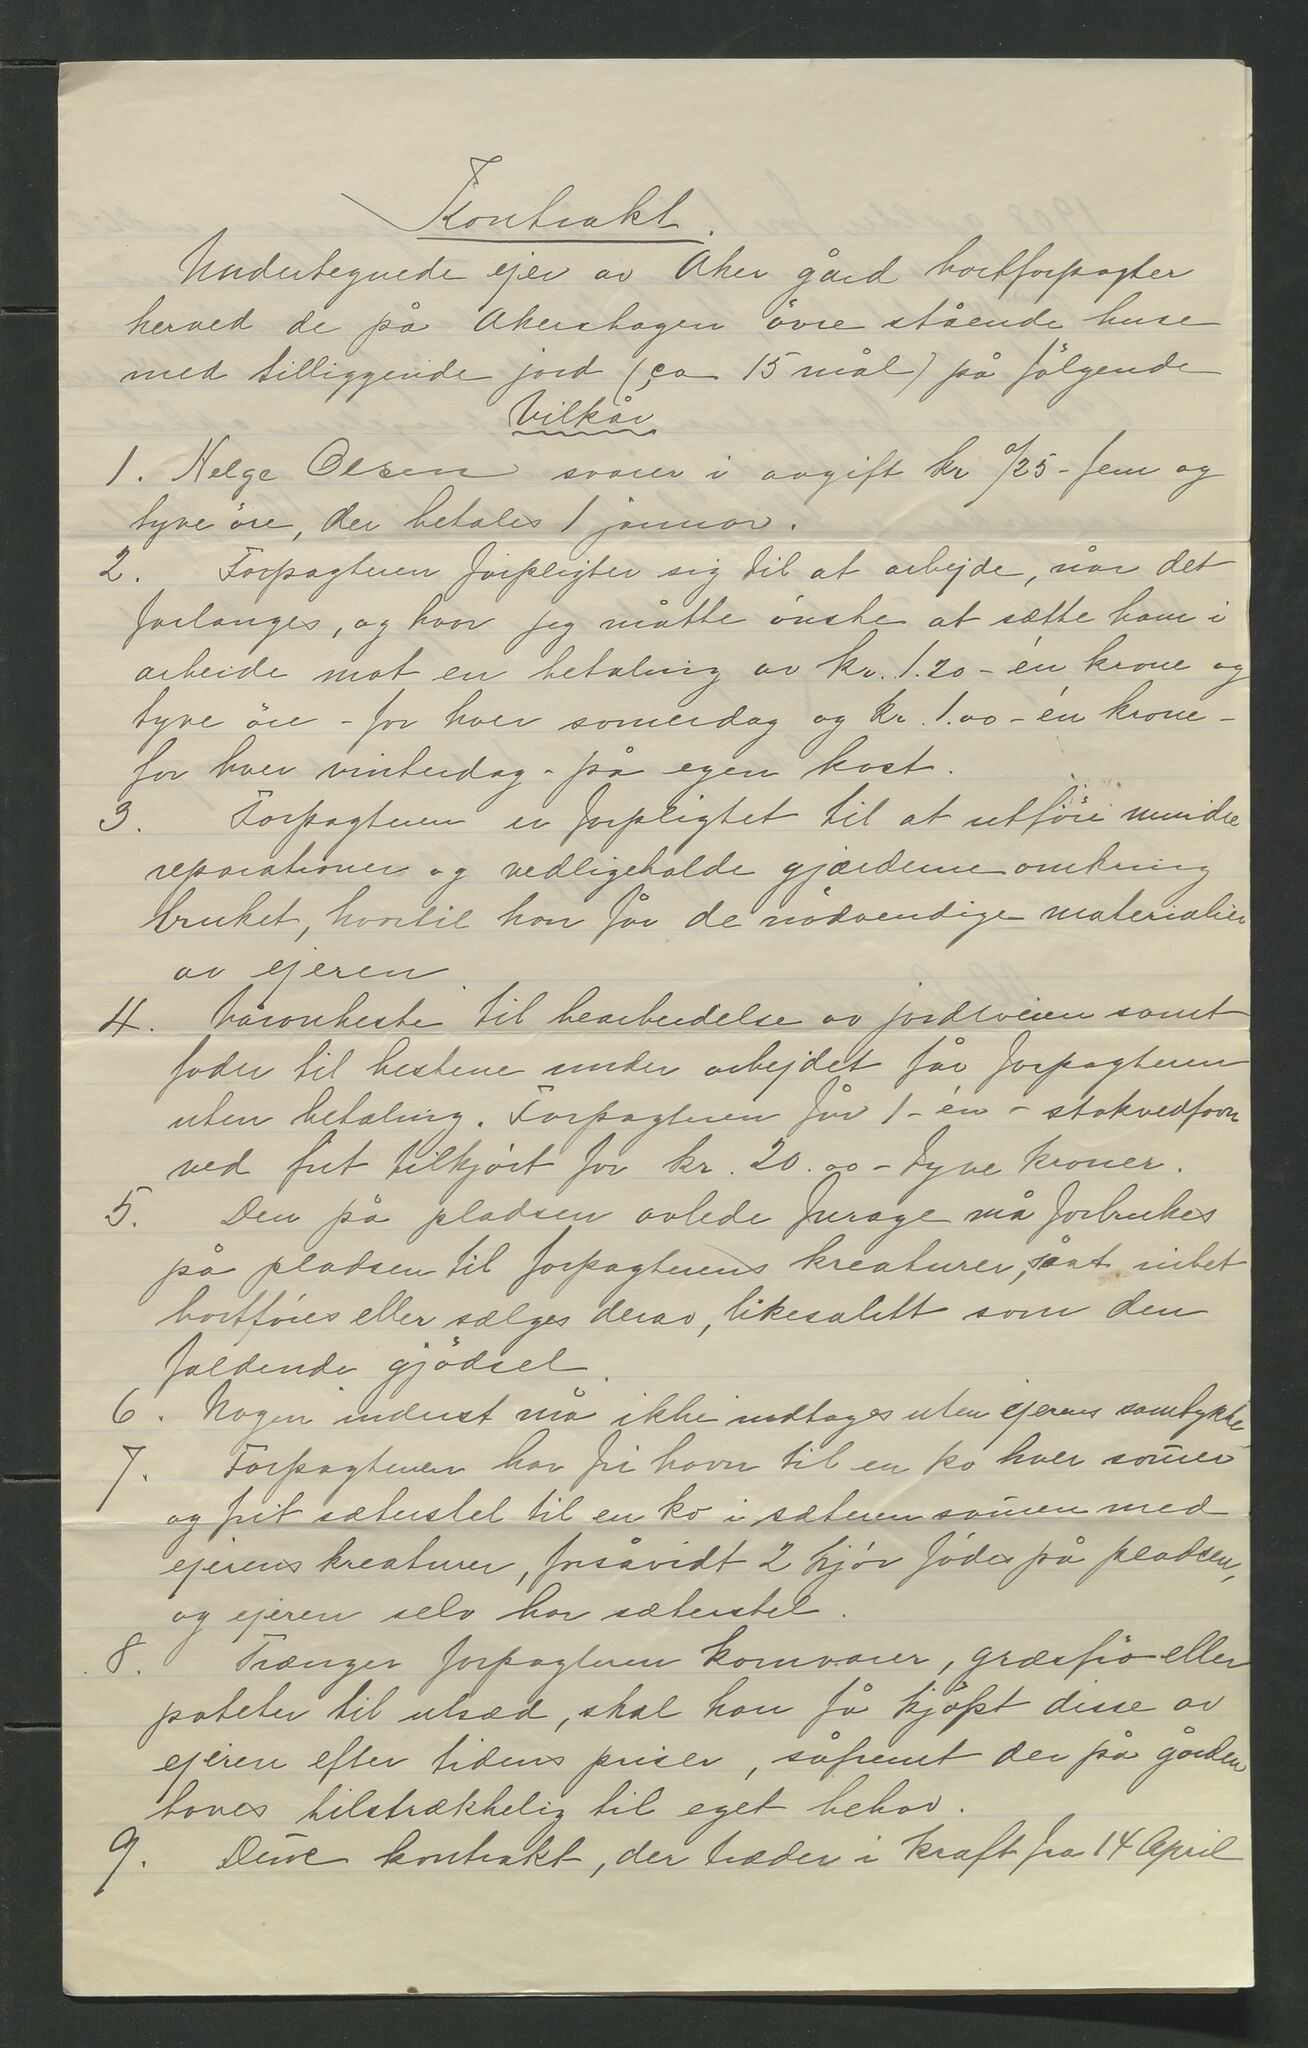 Kontrakt.
Undertegnede ejer av Aker gård bortforpagter
herved de på Akershagen övre stående huse
med tilliggende jord (ca 15 mål) på fölgende
Vilkår
1. Helge Olsen svarer i avgift kr 0/25 - fem og
tyve öre, der betales 1 januar.
2. Forpagteren forpligter sig til at arbejde, når det
forlanges, og hvor jeg måtte önske at sætte ham i
arbeide mot en betaling av kr. 1.20 - én krone og
tyve öre - for hver som̄erdag og kr. 1.00 - én krone -
for hver vinterdag - på egen kost.
3. Forpagteren er forpligtet til at utföre mindre
reparationer og vedligeholde gjærderne omkring
bruket, hvortil han får de nödvendige materialier
av ejeren.
4. Våronheste til bearbeidelse av jordveien samt
foder til hestene under arbejdet får forpagteren
uten betaling. Forpagteren får 1 - én - stakvedfavn
ved frit tilkjört for kr. 20.00 - tyve kroner.
5. Den på pladsen avlede furage må forbrukes
på pladsen til forpagterens kreaturer, såat intet
bortföres eller sælges derav, likesålitt som den
faldende gjödsel.
6. Nogen inderst må ikke mottages uten ejerens samtykke
7. Forpagteren har fri havn til en ko hver som̄er
og frit sæterstel til en ko i sæteren sam̄en med
ejerens kreaturer, forsåvidt 2 kjör födes på pladsen,
og ejeren selv har sæterstel.
8. Trænger forpagteren kornvarer, græsfrö eller
poteter til utsæd, skal han få kjöpt disse av
ejeren efter tidens priser, såfremt der på gården
haves tilstrækkelig til eget behov.
9. Den̄e kontrakt, der træder i kraft fra 14 April